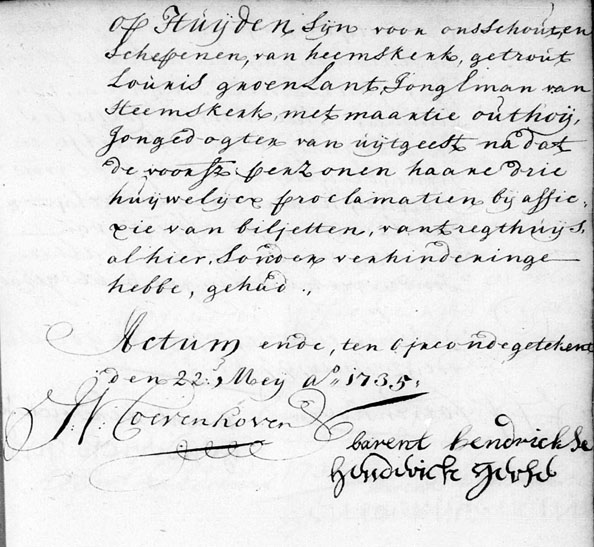 op Huijden Sijn voor ons Schout en
Schepenen, van heemskerk, getrout
Louris groenLant, Jonghman van
Heemskerk, met maartie outhoij,
Jongedogter van uijtgeest na dat
de voorsz. perzonen haare drie
huijwelijcx proclamatien bij affic-
xie van biljetten, van 't regthuijs,
alhier, Sonder verhinderinge
hebbe, gehad.,
Actum ende, ten oirconde geteekent
den 22: Meij ao. 1735:
Coevenhoven
barent hendrickse
Henderick